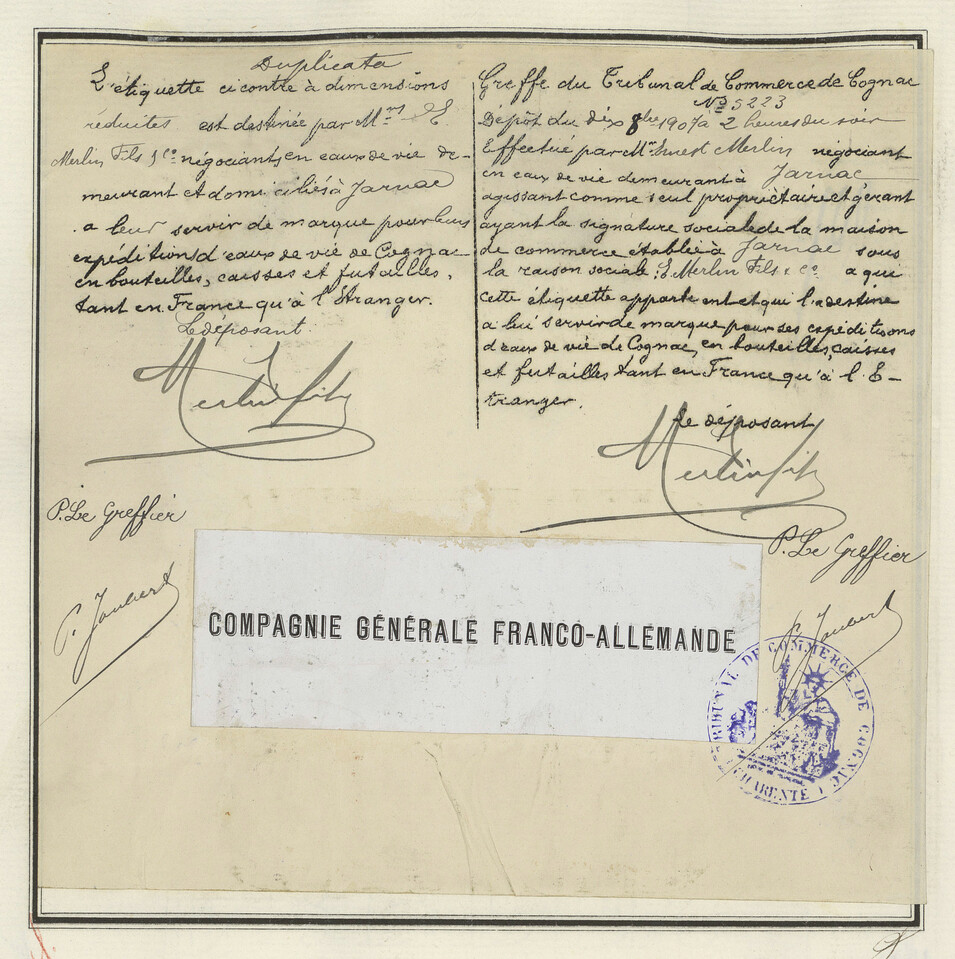 Duplicata
L'étiquette ci contre à dimensions
réduites est destinée par Mrs E.
Merlin Fils & Co. négociants en eaux de vie de-
meurant et domiciliés à Jarnac
a leur servir de marque pour leurs
expéditions d'eaux de vie de Cognac
en bouteilles, caisses et futailles,
tant en France qu'à l'Étranger.
Le déposant.
Merlin fils
P. Le Greffier
P. Joubert
Greffe du Tribunal de Commerce de Cognac
No 5223
Dépôt du dix 8bre 1907 à 2 heures du soir
Effectué par Mr Ernest Merlin négociant
en eaux de vie demeurant à Jarnac
agissant comme seul propriètaire et gérant
ayant la signature sociale de la maison
de commerce établie à Jarnac sous
la raison sociale: E. Merlin Fils & Co. a qui
cette étiquette appartient et qui l'a destine
a lui servir de marque pour ses expéditions
d'eaux de vie de Cognac, en bouteilles, caisses
et futailles tant en France qu'à l'É-
tranger.
Le déposant
Merlin fils
P. Le Greffier
P. Joubert
COMPAGNIE GÉNÉRALE FRANCO-ALLEMANDE
TRIBUNAL DE COMMERCE DE COGNAC
(CHARENTE)